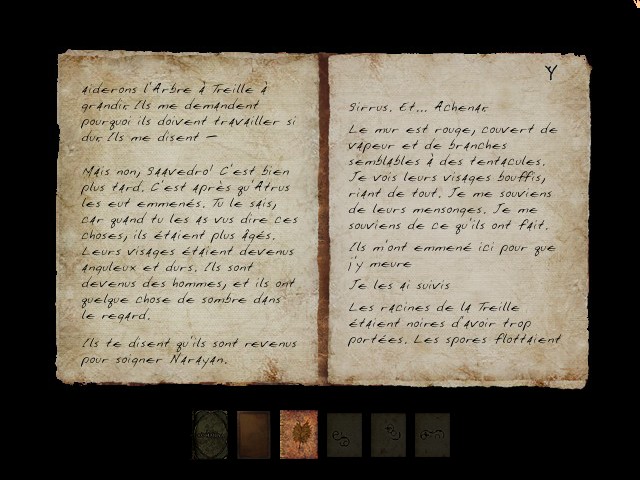 aiderons l'Arbre à Treille à
grandir. Ils me demandent
pourquoi ils doivent travailler si
dur. Ils me disent —
Mais non, Saavedro! C'est bien
plus tard. C'est après qu'Atrus
les eut emmenés. Tu le sais,
car quand tu les as vus dire ces
choses, ils étaient plus âgés.
Leurs visages étaient devenus
anguleux et durs. Ils sont
devenus des hommes, et ils ont
quelque chose de sombre dans
le regard.
Ils te disent qu'ils sont revenus
pour soigner Narayan.
Sirrus. Et... Achenar.
Le mur est rouge, couvert de
vapeur et de branches
semblables à des tentacules.
Je vois leurs visages bouffis,
riant de tout. Je me souviens
de leurs mensonges. Je me
souviens de ce qu'ils ont fait.
Ils m'ont emmené ici pour que
j'y meure
Je les ai suivis
Les racines de la Treille
étaient noires d'avoir trop
portées. Les spores flottaient